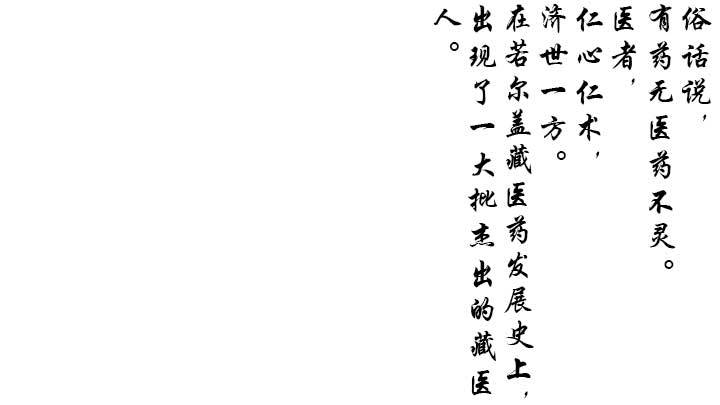 俗话说，
有药无医药不灵。
医者，
仁心仁术，
济世一方。
在若尔盖藏医药发展史上，
出现了一大批杰出的藏医
人。